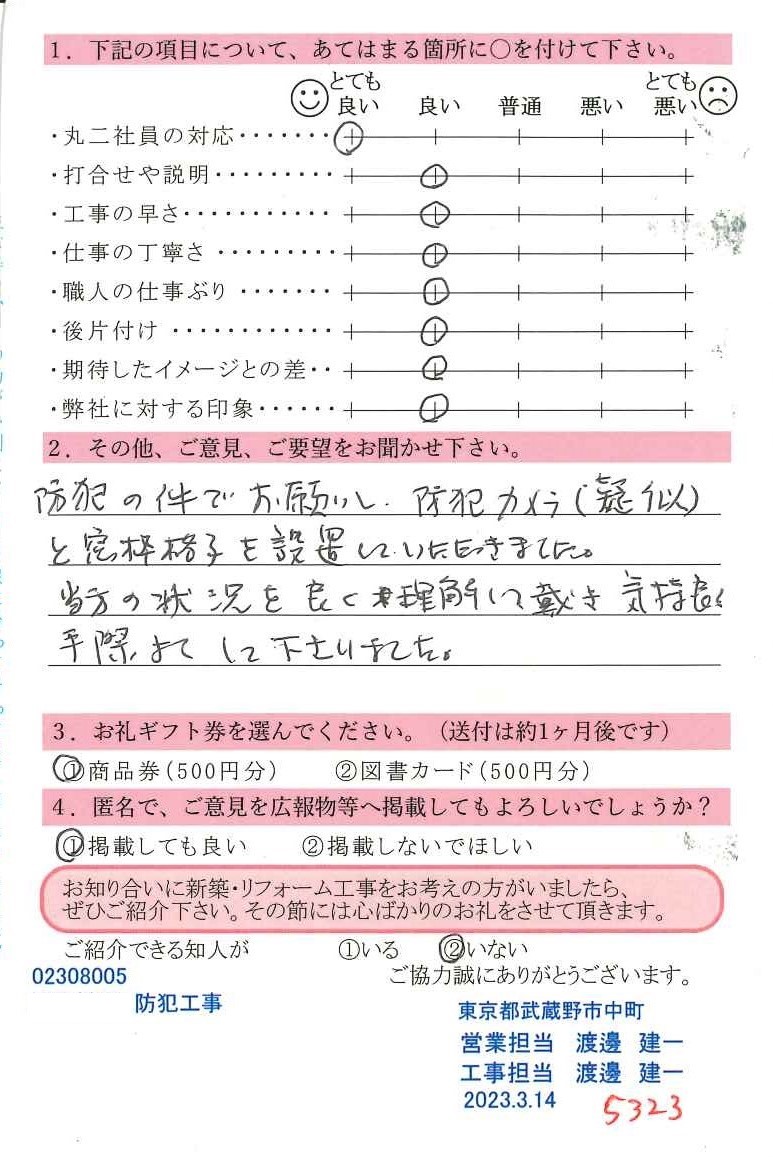 1. 下記の項目について、あてはまる箇所に○を付けて下さい。
とても良い 良い 普通 悪い とても悪い
・丸二社員の対応・・・・・・・
・打合せや説明・・・・・・・・・
・工事の早さ・・・・・・・・・・・
・仕事の丁寧さ・・・・・・・・・
・職人の仕事ぶり・・・・・・・
・後片付け・・・・・・・・・・・・
・期待したイメージとの差・・
・弊社に対する印象・・・・・・
2. その他、ご意見、ご要望をお聞かせ下さい。
防犯の件でお願いし、防犯カメラ(疑似)
と窓枠格子を設置していただきました。
当方の状況を良く理解して戴き気持良く
手際よくして下さりました。
3. お礼ギフト券を選んでください。(送付は約1ヶ月後です)
①商品券(500円分) ②図書カード(500円分)
4. 匿名で、ご意見を広報物等へ掲載してもよろしいでしょうか?
①掲載しても良い ②掲載しないでほしい
お知り合いに新築・リフォーム工事をお考えの方がいましたら、
ぜひご紹介下さい。その節には心ばかりのお礼をさせて頂きます。
ご紹介できる知人が ①いる ②いない
02308005 ご協力誠にありがとうございます。
防犯工事
東京都武蔵野市中町
営業担当 渡邊 建一
工事担当 渡邊 建一
2023.3.14 5323